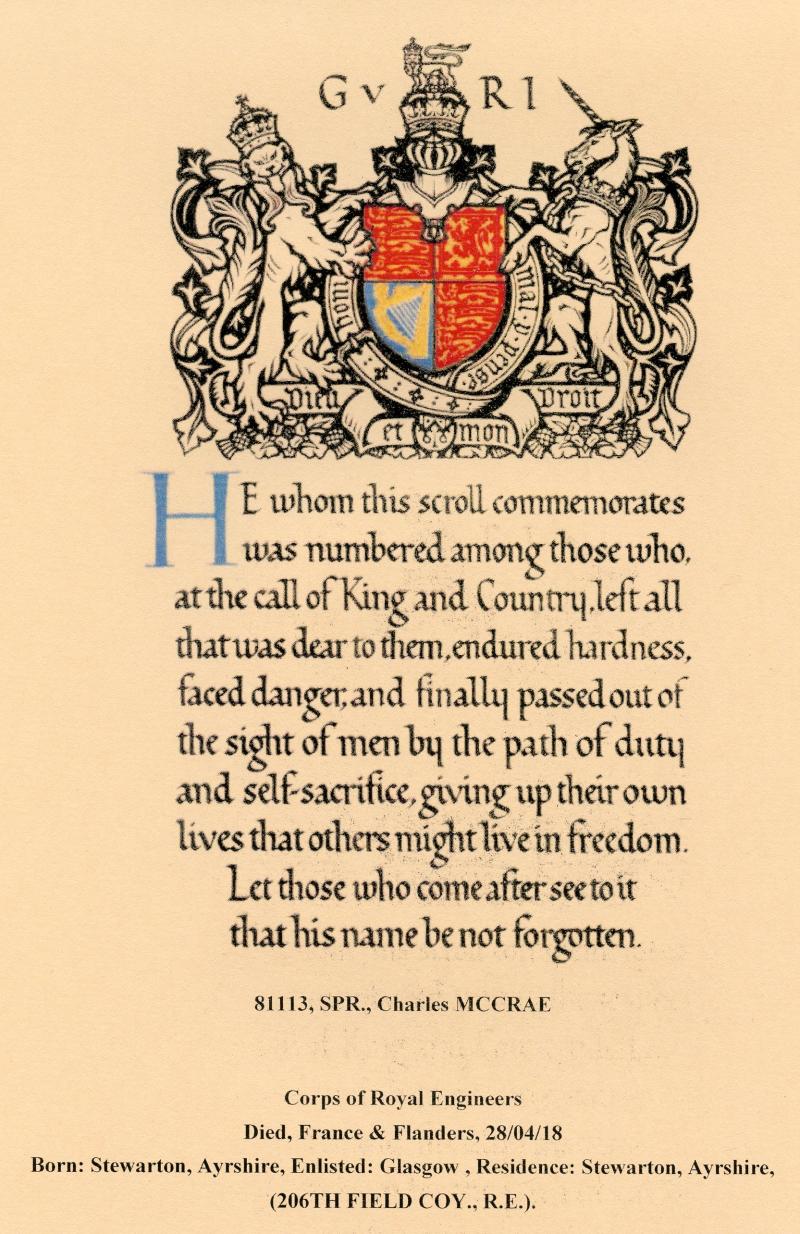 G V R I
mal y pense
Dieu Droit
et mon
HE whom this scroll commemorates
was numbered among those who,
at the call of King and Country, left all
that was dear to them, endured hardness,
faced danger, and finally passed out of
the sight of men by the path of duty
and self-sacrifice, giving up their own
lives that others might live in freedom.
Let those who come after see to it
that his name be not forgotten.
81113, SPR., Charles MCCRAE
Corps of Royal Engineers
Died, France & Flanders, 28/04/18
Born: Stewarton, Ayrshire, Enlisted: Glasgow , Residence: Stewarton, Ayrshire,
(206TH FIELD COY., R.E.).